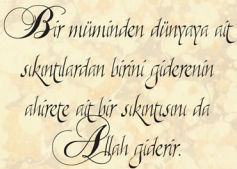 Bir müminden dünyaya ait
sıkıntılardan birini giderenin
ahirete ait bir sıkıntısını da
Allah giderir.